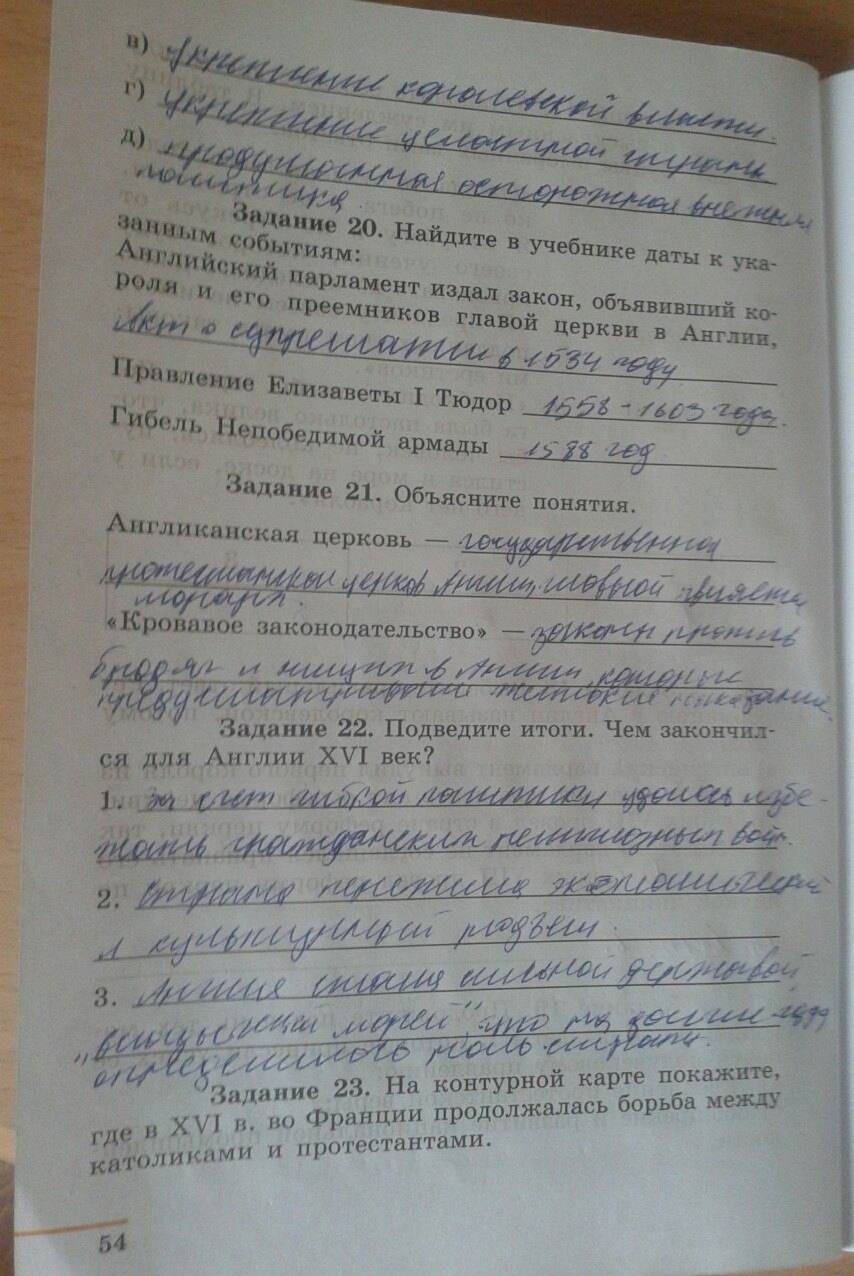 в) Укрепление королевской власти.
г) укрепление целостной страны
д) продуманная осторожная внешняя
политика.
Задание 20. Найдите в учебнике даты к ука-
занным событиям:
Английский парламент издал закон, объявивший ко-
роля и его преемников главой церкви в Англии,
Акт о супрематии в 1534 году.
Правление Елизаветы I Тюдор 1558-1603 года.
Гибель Непобедимой армады 1588 год.
Задание 21. Объясните понятия.
Англиканская церковь — государственная
протестантская церковь Англии, главой является
монарх.
«Кровавое законодательство» — законы против
бродяг и нищих в Англии, которые
предусматривали жестокие наказание.
Задание 22. Подведите итоги. Чем закончил-
ся для Англии XVI век?
1. За счет гибкой политики удалось избе-
жать гражданских религиозных войн.
2. Страна пережила экономический
и культурный подъем.
3. Англия стала сильной державой,
"владычицей морей", что на долгие года
определилось роль страны.
Задание 23. На контурной карте покажите,
где в XVI в. во Франции продолжалась борьба между
католиками и протестантами.
54